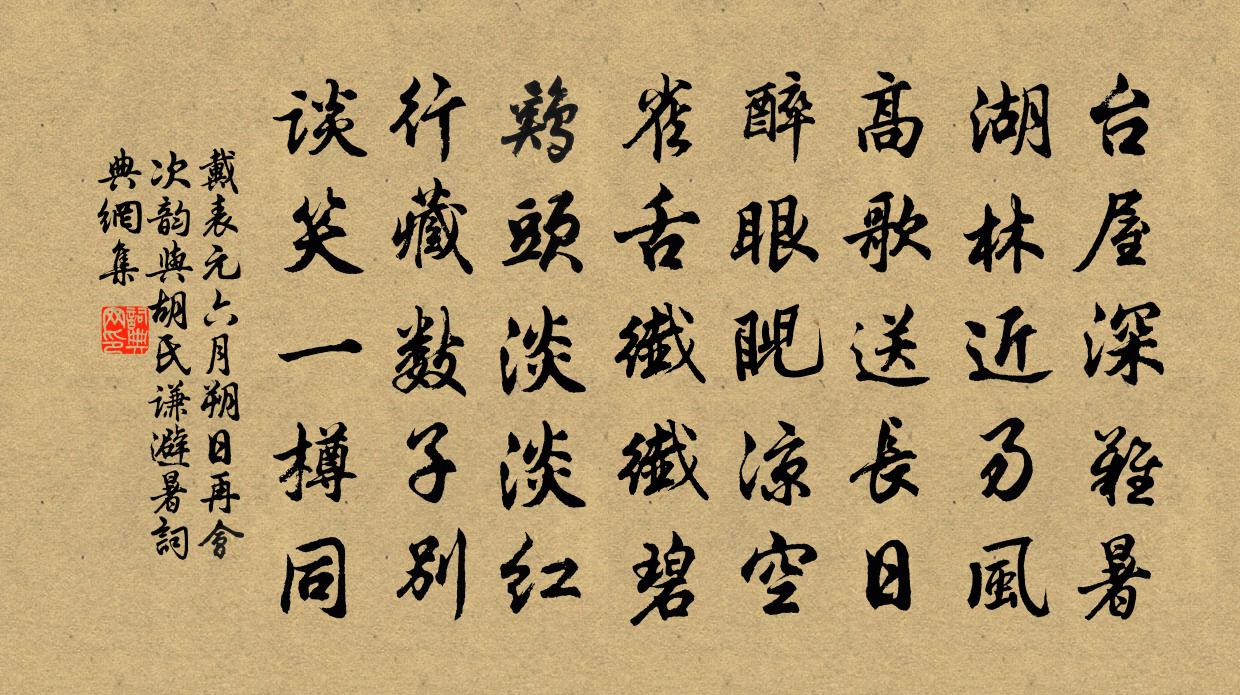 台屋深難暑
湖林近易風
高歌送長日
醉眼睨涼空
雀舌纖纖碧
鷄頭淡淡紅
行藏數子別
談笑一樽同
戴表元六月朔日再會
次韵與胡氏謙避暑詞
典網集
詞典
网印